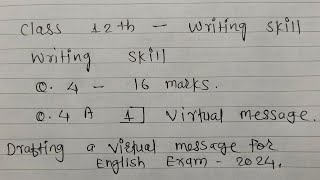 Class 12th - Writing skill
Writing skill
Q. 4 - 16 marks.
Q. 4 A 1 Virtual message.
Drafting a Virtual message for
English Exam - 2024.